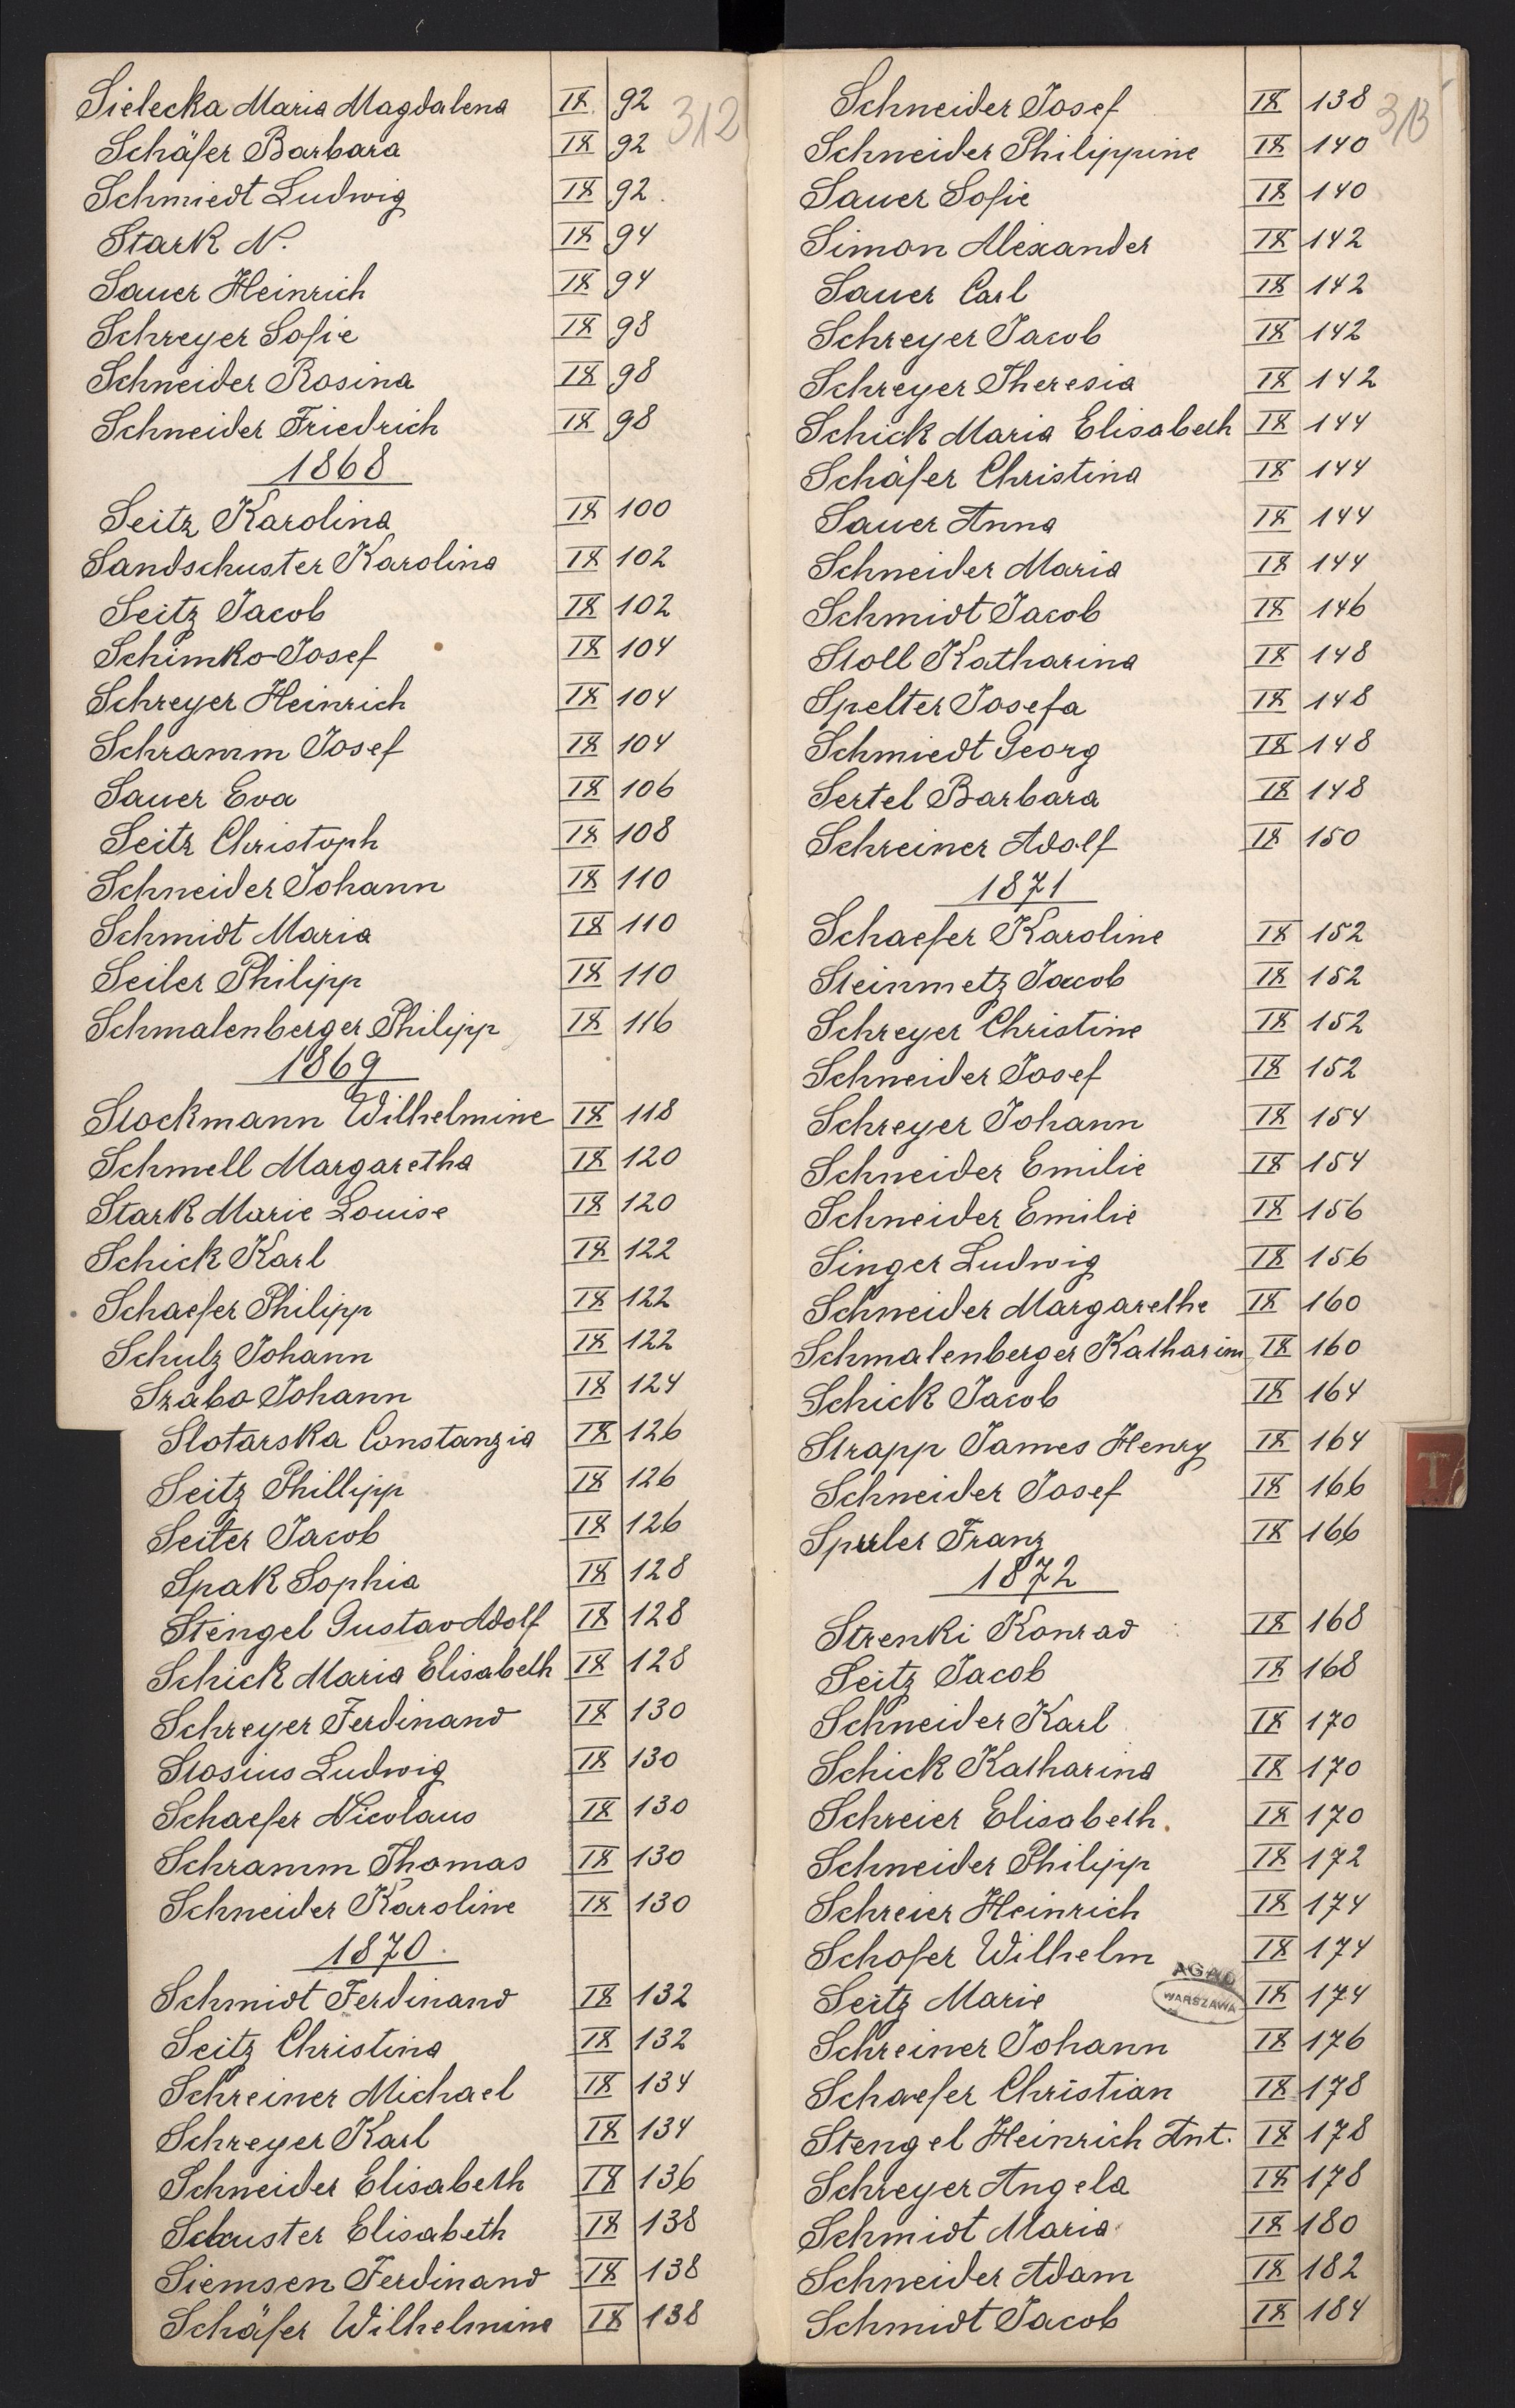 312
Sielecka Maria Magdalena IX 92
Schäfer Barbara IX 92
Schmiedt Ludwig IX 92
Stark N. IX 94
Sauer Heinrich IX 94
Schreyer Sofie IX 98
Schneider Rosina IX 98
Schneider Friedrich IX 98
1868
Seitz Karolina IX 100
Sandschuster Karolina IX 102
Seitz Jacob IX 102
Schimko Josef IX 104
Schreyer Heinrich IX 104
Schramm Josef IX 104
Sauer Eva IX 106
Seitz Christoph IX 108
Schneider Johann IX 110
Schmidt Maria IX 110
Seiler Philipp IX 110
Schmalenberger Philipp IX 116
1869
Stockmann Wilhelmine IX 118
Schmell Margaretha IX 120
Stark Marie Louise IX 120
Schick Karl IX 122
Schaefer Philipp IX 122
Schulz Johann IX 122
Szabo Johann IX 124
Slotarska Constanzia IX 126
Seitz Phillipp IX 126
Seiter Jacob IX 126
Spak Sophia IX 128
Stengel Gustav Adolf IX 128
Schick Maria Elisabeth IX 128
Schreyer Ferdinand IX 130
Stosius Ludwig IX 130
Schaefer Nicolaus IX 130
Schramm Thomas IX 130
Schneider Karoline IX 130
1870
Schmidt Ferdinand IX 132
Seitz Christina IX 132
Schreiner Michael IX 134
Schreyer Karl IX 134
Schneider Elisabeth IX 136
Schuster Elisabeth IX 138
Siemsen Ferdinand IX 138
Schäfer Wilhelmine IX 138
313
Schneider Josef IX 138
Schneider Philippine IX 140
Sauer Sofie IX 140
Simon Alexander IX 142
Sauer Carl IX 142
Schreyer Jacob IX 142
Schreyer Theresia IX 142
Schick Maria Elisabeth IX 144
Schäfer Christina IX 144
Sauer Anna IX 144
Schneider Maria IX 144
Schmidt Jacob IX 146
Stoll Katharina IX 148
Spelter Josefa IX 148
Schmiedt Georg IX 148
Sertel Barbara IX 148
Schreiner Adolf IX 150
1871
Schaefer Karoline IX 152
Steinmetz Jacob IX 152
Schreyer Christine IX 152
Schneider Josef IX 152
Schreyer Johann IX 154
Schneider Emilie IX 154
Schneider Emilie IX 156
Singer Ludwig IX 156
Schneider Margarethe IX 160
Schmalenberger Katharina IX 160
Schick Jacob IX 164
Strapp James Henry IX 164
Schneider Josef IX 166
Franz IX 166
1872
Strenki Konrad IX 168
Seitz Jacob IX 168
Schneider Karl IX 170
Schick Katharina IX 170
Schreier Elisabeth. IX 170
Schneider Philipp IX 172
Schreier Heinrich IX 174
Schofer Wilhelm IX 174
Seitz Marie IX 174
Schreiner Johann IX 176
Schaefer Christian IX 178
Stengel Heinrich Ant. IX 178
Schreyer Angela IX 178
Schmidt Maria IX 180
Schneider Adam IX 182
Schmidt Jacob IX 184
AGAD
WARSZAWA
T